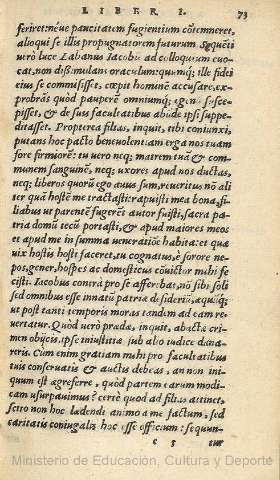 LIBER I. 73
feriret: néue paucitatem fugientium cōtemneret,
alioqui se illis propugnatorem futurum. Sequēti
uerò luce Labanus Iacobū ad colloquium euo-
cat, non diß: mulans oraculum: quumq; ille fidei
eius se commisisset, cœpit homine accusare, ex-
probrās quòd pauperē omniumq; egenū susce-
pisset, & de suis facultatibus abūde ipsi suppe-
ditasset. Propterea filias, inquit, tibi coniunxi,
putans hoc pacto beneuolentiam erga nos tuam
fore firmiorē: tu uero neq; matrem tuā & com-
munem sanguinē, neq; uxores apud nos ductas,
neq; liberos quorū ego auus sum, reueritus nō ali
ter quā hostē me tractasti: rapuisti mea bona, fi-
liabus ut parentē fugerēt autor fuisti, sacra pa-
tria domū tecū portasti, & apud maiores meos
et apud me in summa ueneratiōe habita: et quæ
uix hostis hosti faceret, tu cognatus, è sorore ne-
pos, gener, hospes ac domesticus cōuictor mihi fe
cisti. Iacobus contrà pro se afferebat, nō sibi soli
sed omnibus esse innatū patriæ desideriū, æquūq;
ut post tanti temporis moras tandem ad eam re-
uertatur. Quòd uerò prædæ, inquit, abactæ cri-
men obijcis, ipse iniustitiæ sub alio iudice damna-
reris. Cum enim gratiam mihi pro facultatibus
tuis conseruatis & auctis debeas, an non ini-
quum est ægre ferre, quòd partem earum modi-
cam usurpauimus? certè quod ad filias attinet,
scito non hoc lædendi animo à me factum, sed
caritatis coniugalis hoc esse officium: sequun-
c 5 tur
Ministerio de Educación, Cultura y Deporte